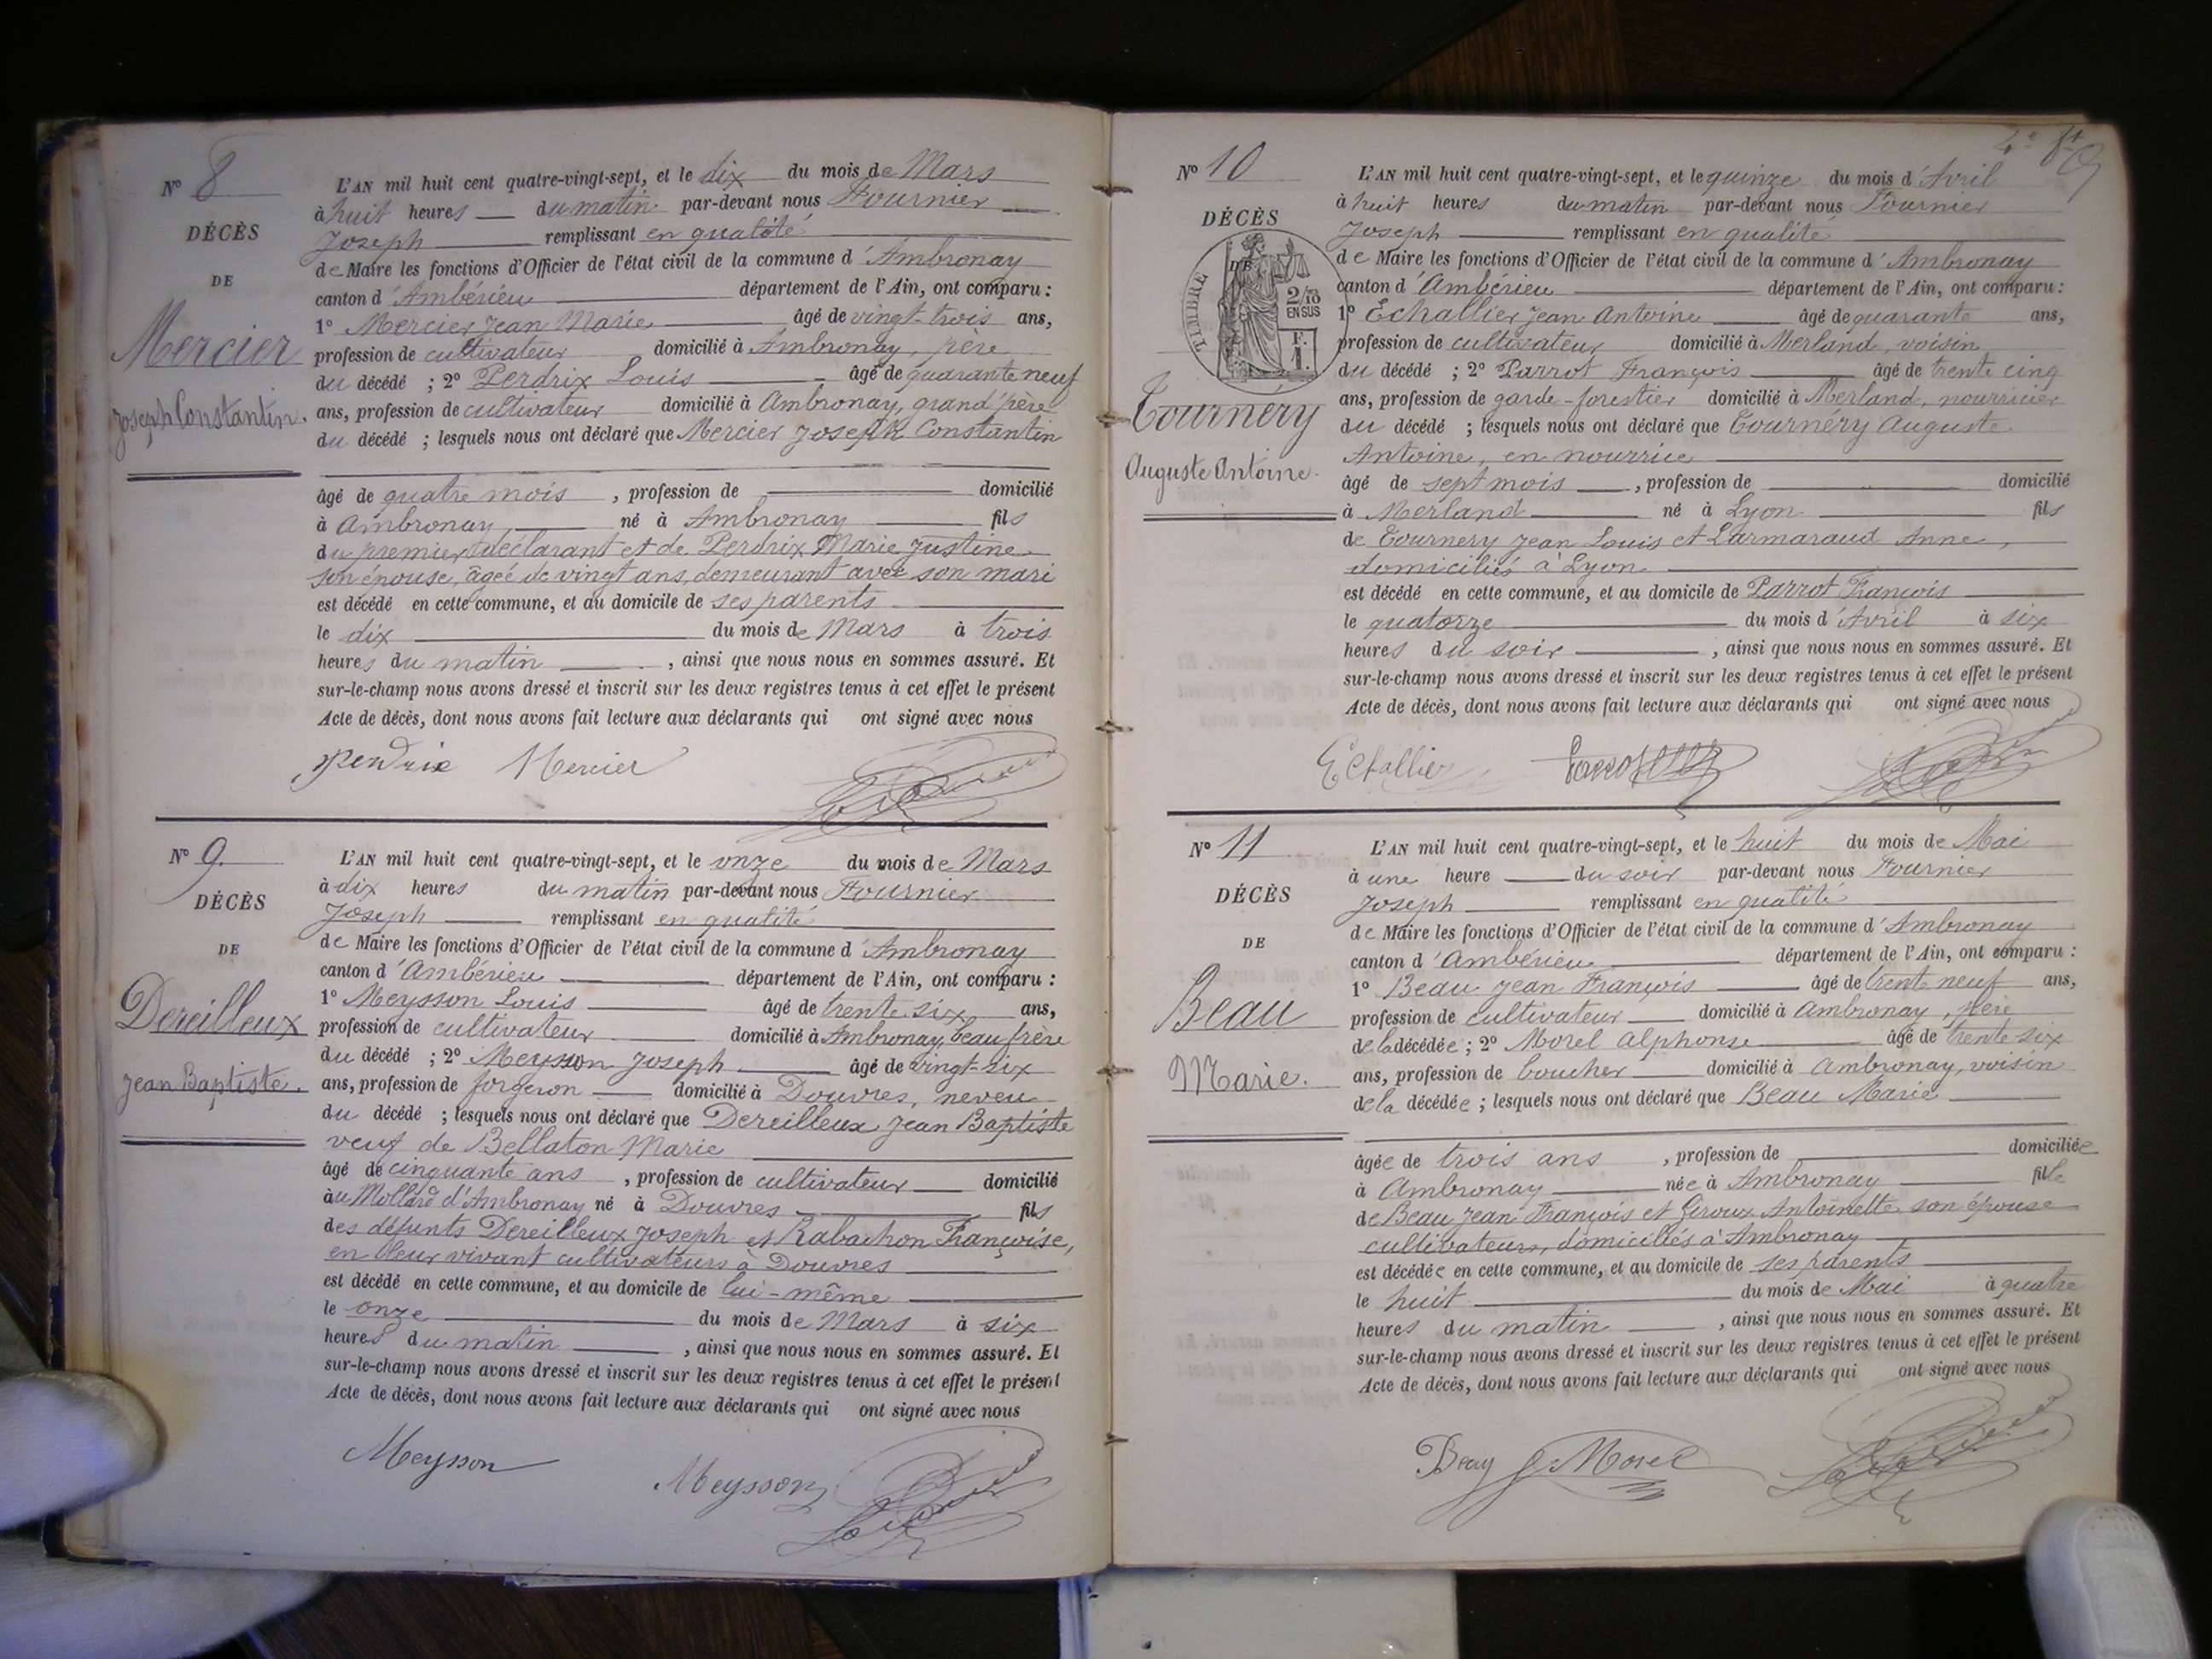 N° 8
DÉCÈS
DE
Mercier
Joseph Constantin.
L'AN mil huit cent quatre-vingt-sept, et le dix du mois de Mars
à huit heures du matin par-devant nous Fournier
Joseph remplissant en qualité
de Maire les fonctions d'Officier de l'état civil de la commune d'Ambronay
canton d'Ambérieu département de l'Ain, ont comparu :
1° Mercier Jean Marie âgé de vingt-trois ans,
profession de cultivateur domicilié à Ambronay, père
du décédé ; 2° Perdrix Louis âgé de quarante neuf
ans, profession de cultivateur domicilié à Ambronay, grand'père
du décédé ; lesquels nous ont déclaré que Mercier Joseph Constantin
âgé de quatre mois, profession de domicilié
à Ambronay, né à Ambronay fils
du premier déclarant et de Perdrix Marie Justine
son épouse, âgée de vingt ans, demeurant avec son mari
est décédé en cette commune, et au domicile de ses parents
le dix du mois de Mars à trois
heures du matin, ainsi que nous nous en sommes assuré. Et
sur-le-champ nous avons dressé et inscrit sur les deux registres tenus à cet effet le présent
Acte de décès, dont nous avons fait lecture aux déclarants qui ont signé avec nous
Perdrix Mercier
N° 9.
DÉCÈS
DE
Dereilleux
Jean Baptiste.
L'AN mil huit cent quatre-vingt-sept, et le onze du mois de Mars
à dix heures du matin par-devant nous Fournier
Joseph remplissant en qualité
de Maire les fonctions d'Officier de l'état civil de la commune d'Ambronay
canton d'Ambérieu département de l'Ain, ont comparu :
1° Meysson Louis âgé de trente six ans,
profession de cultivateur domicilié à Ambronay, beau frère
du décédé ; 2° Meysson Joseph âgé de vingt-six
ans, profession de forgeron domicilié à Douvres, neveu
du décédé ; lesquels nous ont déclaré que Dereilleux Jean Baptiste
veuf de Bellaton Marie
âgé de cinquante ans, profession de cultivateur domicilié
au Mollard d'Ambronay né à Douvres fils
des défunts Dereilleux Joseph et Rabachon Françoise,
en leur vivant cultivateurs à Douvres
est décédé en cette commune, et au domicile de lui-même
le onze du mois de Mars à six
heures du matin, ainsi que nous nous en sommes assuré. Et
sur-le-champ nous avons dressé et inscrit sur les deux registres tenus à cet effet le présent
Acte de décès, dont nous avons fait lecture aux déclarants qui ont signé avec nous
Meysson Meysson
4e
N° 10
DÉCÈS
DE
TIMBRE
2/10
EN SUS
F.
1.
Tournéry
Auguste Antoine.
L'AN mil huit cent quatre-vingt-sept, et le quinze du mois d'Avril
à huit heures du matin par-devant nous Fournier
Joseph remplissant en qualité
de Maire les fonctions d'Officier de l'état civil de la commune d'Ambronay
canton d'Ambérieu département de l'Ain, ont comparu :
1° Echallier Jean Antoine âgé de quarante ans,
profession de cultivateur domicilié à Merland, voisin
du décédé ; 2° Parrot François âgé de trente cinq
ans, profession de garde-forestier domicilié à Merland, nourricier
du décédé ; lesquels nous ont déclaré que Tournéry Auguste
Antoine, en nourrice
âgé de sept mois, profession de domicilié
à Merland né à Lyon fils
de Tournery Jean Louis et Larmaraud Anne,
domiciliés à Lyon
est décédé en cette commune, et au domicile de Parrot François
le quatorze du mois d'Avril à six
heures du soir, ainsi que nous nous en sommes assuré. Et
sur-le-champ nous avons dressé et inscrit sur les deux registres tenus à cet effet le présent
Acte de décès, dont nous avons fait lecture aux déclarants qui ont signé avec nous
Echallier
N° 11
DÉCÈS
DE
Beau
Marie.
L'AN mil huit cent quatre-vingt-sept, et le huit du mois de Mai
à une heure du soir par-devant nous Fournier
Joseph remplissant en qualité
de Maire les fonctions d'Officier de l'état civil de la commune d'Ambronay
canton d'Ambérieu département de l'Ain, ont comparu :
1° Beau Jean François âgé de trente neuf ans,
profession de cultivateur domicilié à Ambronay, père
de la décédée ; 2° Morel Alphonse âgé de trente six
ans, profession de boucher domicilié à Ambronay, voisin
de la décédée ; lesquels nous ont déclaré que Beau Marie
âgée de trois ans, profession de domiciliée
à Ambronay née à Ambronay fille
de Beau Jean François et Giroux Antoinette son épouse
cultivateurs, domiciliés à Ambronay
est décédée en cette commune, et au domicile de ses parents
le huit du mois de Mai à quatre
heures du matin, ainsi que nous nous en sommes assuré. Et
sur-le-champ nous avons dressé et inscrit sur les deux registres tenus à cet effet le présent
Acte de décès, dont nous avons fait lecture aux déclarants qui ont signé avec nous
Beau Morel